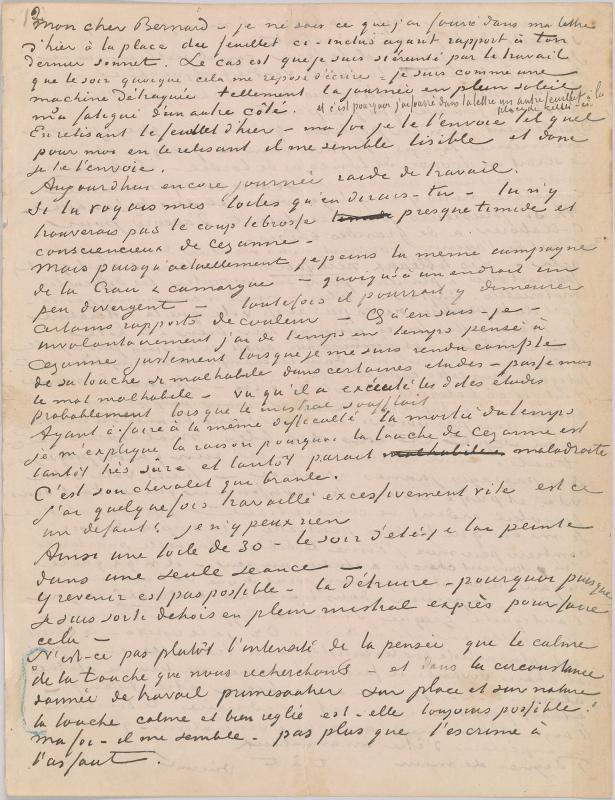 Mon cher Bernard - je ne sais ce que j'ai fourré dans ma lettre
d'hier à la place du feuillet ci-inclus ayant rapport à ton
dernier sonnet. Le cas est que je suis si éreinté par le travail
que le soir quoique cela me repose d'écrire - je suis comme une
machine détraquée tellement la journée en plein soleil
m'a fatigué d'un autre côté
et c'est pourquoi j'ai fourré dans la lettre un autre feuillet à la
place de celui-ci
En relisant le feuillet d'hier - ma foi je te l'envoie tel quel
pour moi en le relisant il me semble lisible et donc
je te l'envoie.
Aujourd'hui encore journée raide de travail.
Si tu voyais mes toiles qu'en dirais-tu - tu n'y
trouverais pas le coup de brosse presque timide et
consciencieux de Cezanne -
Mais puisqu'actuellement je peins la même campagne
de la Crau & camargue - quoiqu'à un endroit un
peu divergent - toutefois il pourrait y demeurer
certains rapports de couleur - Qu'en sais-je -
involontairement j'ai de temps en temps pensé à
Cezanne justement lorsque je me suis rendu compte
de sa touche si malhabile dans certaines etudes - passe moi
le mot malhabile - vu qu'il a exécuté les dites études
probablement lorsque le mistral soufflait
Ayant à faire à la même difficulté la moitié du temps
je m'explique la raison pourquoi la touche de Cezanne est
tantôt très sûre et tantôt parait malhabile maladroite
C'est son chevalet qui branle.
J'ai quelquefois travaillé excessivement vite est ce
un defaut? je n'y peux rien
Ainsi une toile de 30 - le soir d'été - je l'ai peinte
dans une seule seance -
Y revenir est pas possible - la détruire - pourquoi puisque
je suis sorti dehors en plein mistral exprès pour faire
cela -
N'est-ce pas plutôt l'intensité de la pensée que le calme
de la touche que nous recherchons - et dans la circonstance
donnée de travail primesautier sur place et sur nature
la touche calme et bien reglée est-elle toujours possible?
Ma foi - il me semble - pas plus que l'escrime à
l'assaut.